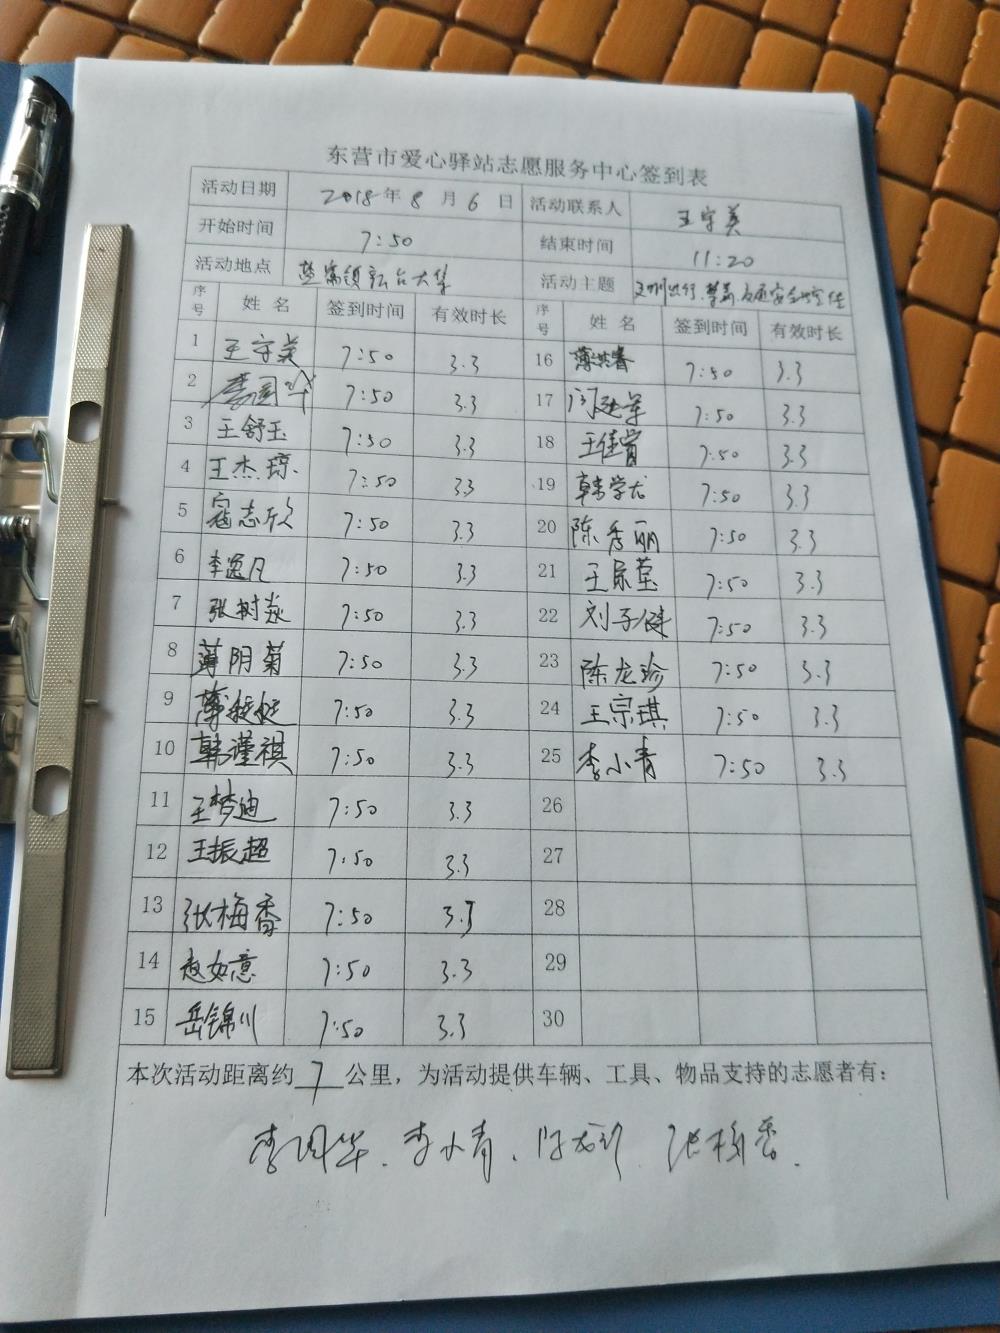 东营市爱心驿站志愿服务中心签到表
活动日期 2018年 8 月 6 日 活动联系人 王守美
开始时间 7:50 结束时间 11:20
活动地点 活动主题
序号 姓名 签到时间 有效时长 序号 姓名 签到时间 有效时长
1 王守美 7:50 3.3 16 薄洪春 7:50 3.3
2 李国华 7:50 3.3 17 7:50 3.3
3 王舒玉 7:50 3.3 18 王佳音 7:50 3.3
4 王杰琼 7:50 3.3 19 韩学尤 7:50 3.3
5 志欣 7:50 3.3 20 陈秀丽 7:50 3.3
6 李逸凡 7:50 3.3 21 王 7:50 3.3
7 张树焱 7:50 3.3 22 刘子健 7:50 3.3
8 薄阴菊 7:50 3.3 23 陈龙珍 7:50 3.3
9 薄 7:50 3.3 24 王宗琪 7:50 3.3
10 韩谨祺 7:50 3.3 25 李小青 7:50 3.3
11 王梦迪 7:50 3.3 26
12 王振超 7:50 3.3 27
13 张梅香 7:50 3.3 28
14 赵如意 7:50 3.3 29
15 岳锦川 7:50 3.3 30
本次活动距离约 7 公里，为活动提供车辆、工具、物品支持的志愿者有：
李国华、李小青、陈龙珍、张梅香.